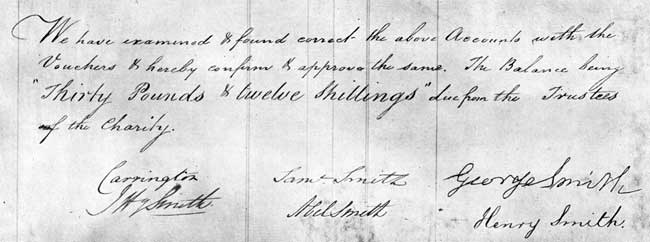 We have examined & found correct the above Accounts with the
Vouchers & hereby confirm & approve the same. The Balance being
"Thirty Pounds & twelve Shillings" due from the Trustees
of the Charity.
Carrington Saml Smith George Smith
Smith Abel Smith Henry Smith.